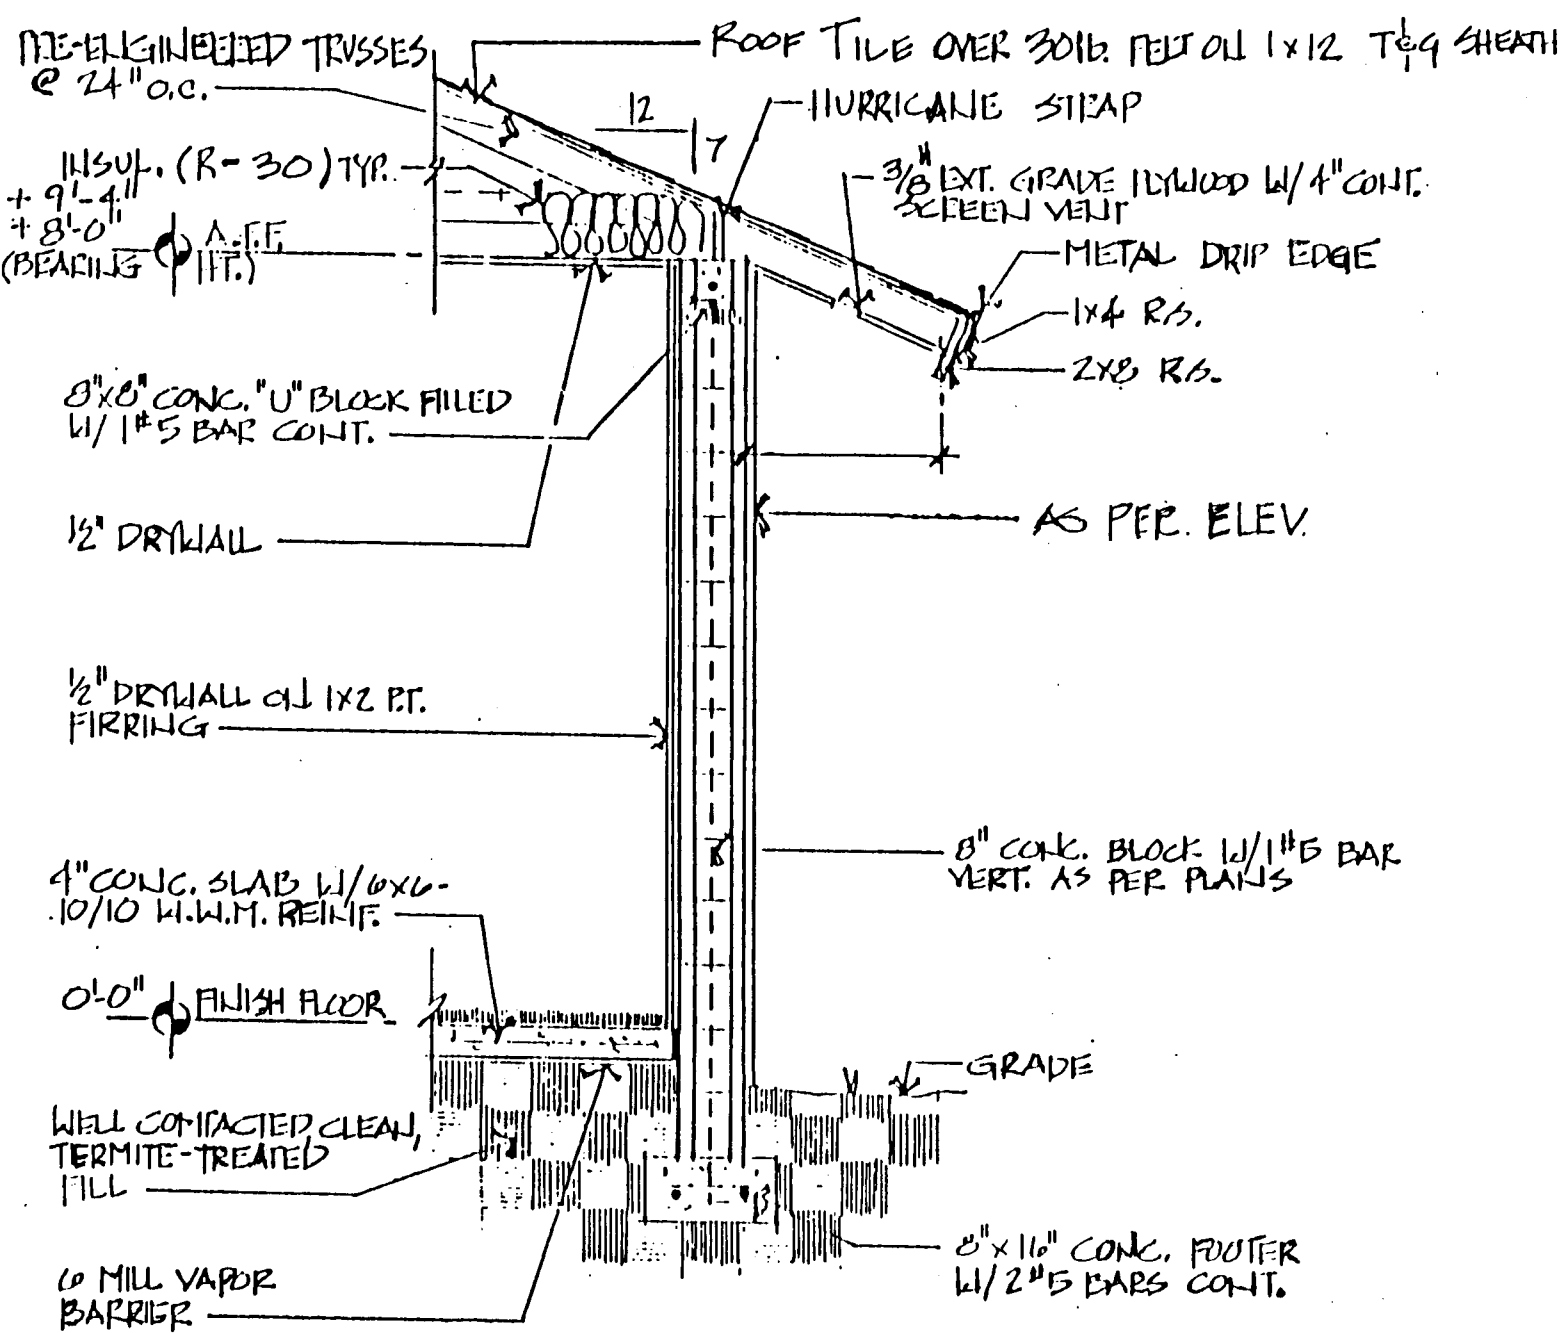 PRE-ENGINEERED TRUSSES
@ 24" O.C.
ROOF TILE OVER 30lb. FELT ON 1x12 T&G SHEATH
HURRICANE STRAP
12
7
INSUL. (R-30) TYP.
3/8" EXT. GRADE PLYWOOD W/ 4" CONT.
SCREEN VENT
+ 9'-4"
+ 8'-0" A.F.F.
(BEARING HT.)
METAL DRIP EDGE
1x4 R.S.
2x8 R.S.
8"x8" CONC. "U" BLOCK FILLED
W/ 1#5 BAR CONT.
1/2" DRYWALL
AS PER. ELEV.
1/2" DRYWALL ON 1x2 P.T.
FIRRING
8" CONC. BLOCK W/1#5 BAR
VERT. AS PER PLANS
4" CONC. SLAB W/6x6-
10/10 W.W.M. REINF.
0'-0" FINISH FLOOR
GRADE
WELL COMPACTED, CLEAN,
TERMITE-TREATED
FILL
8"x16" CONC. FOOTER
W/2#5 BARS CONT.
6 MILL VAPOR
BARRIER